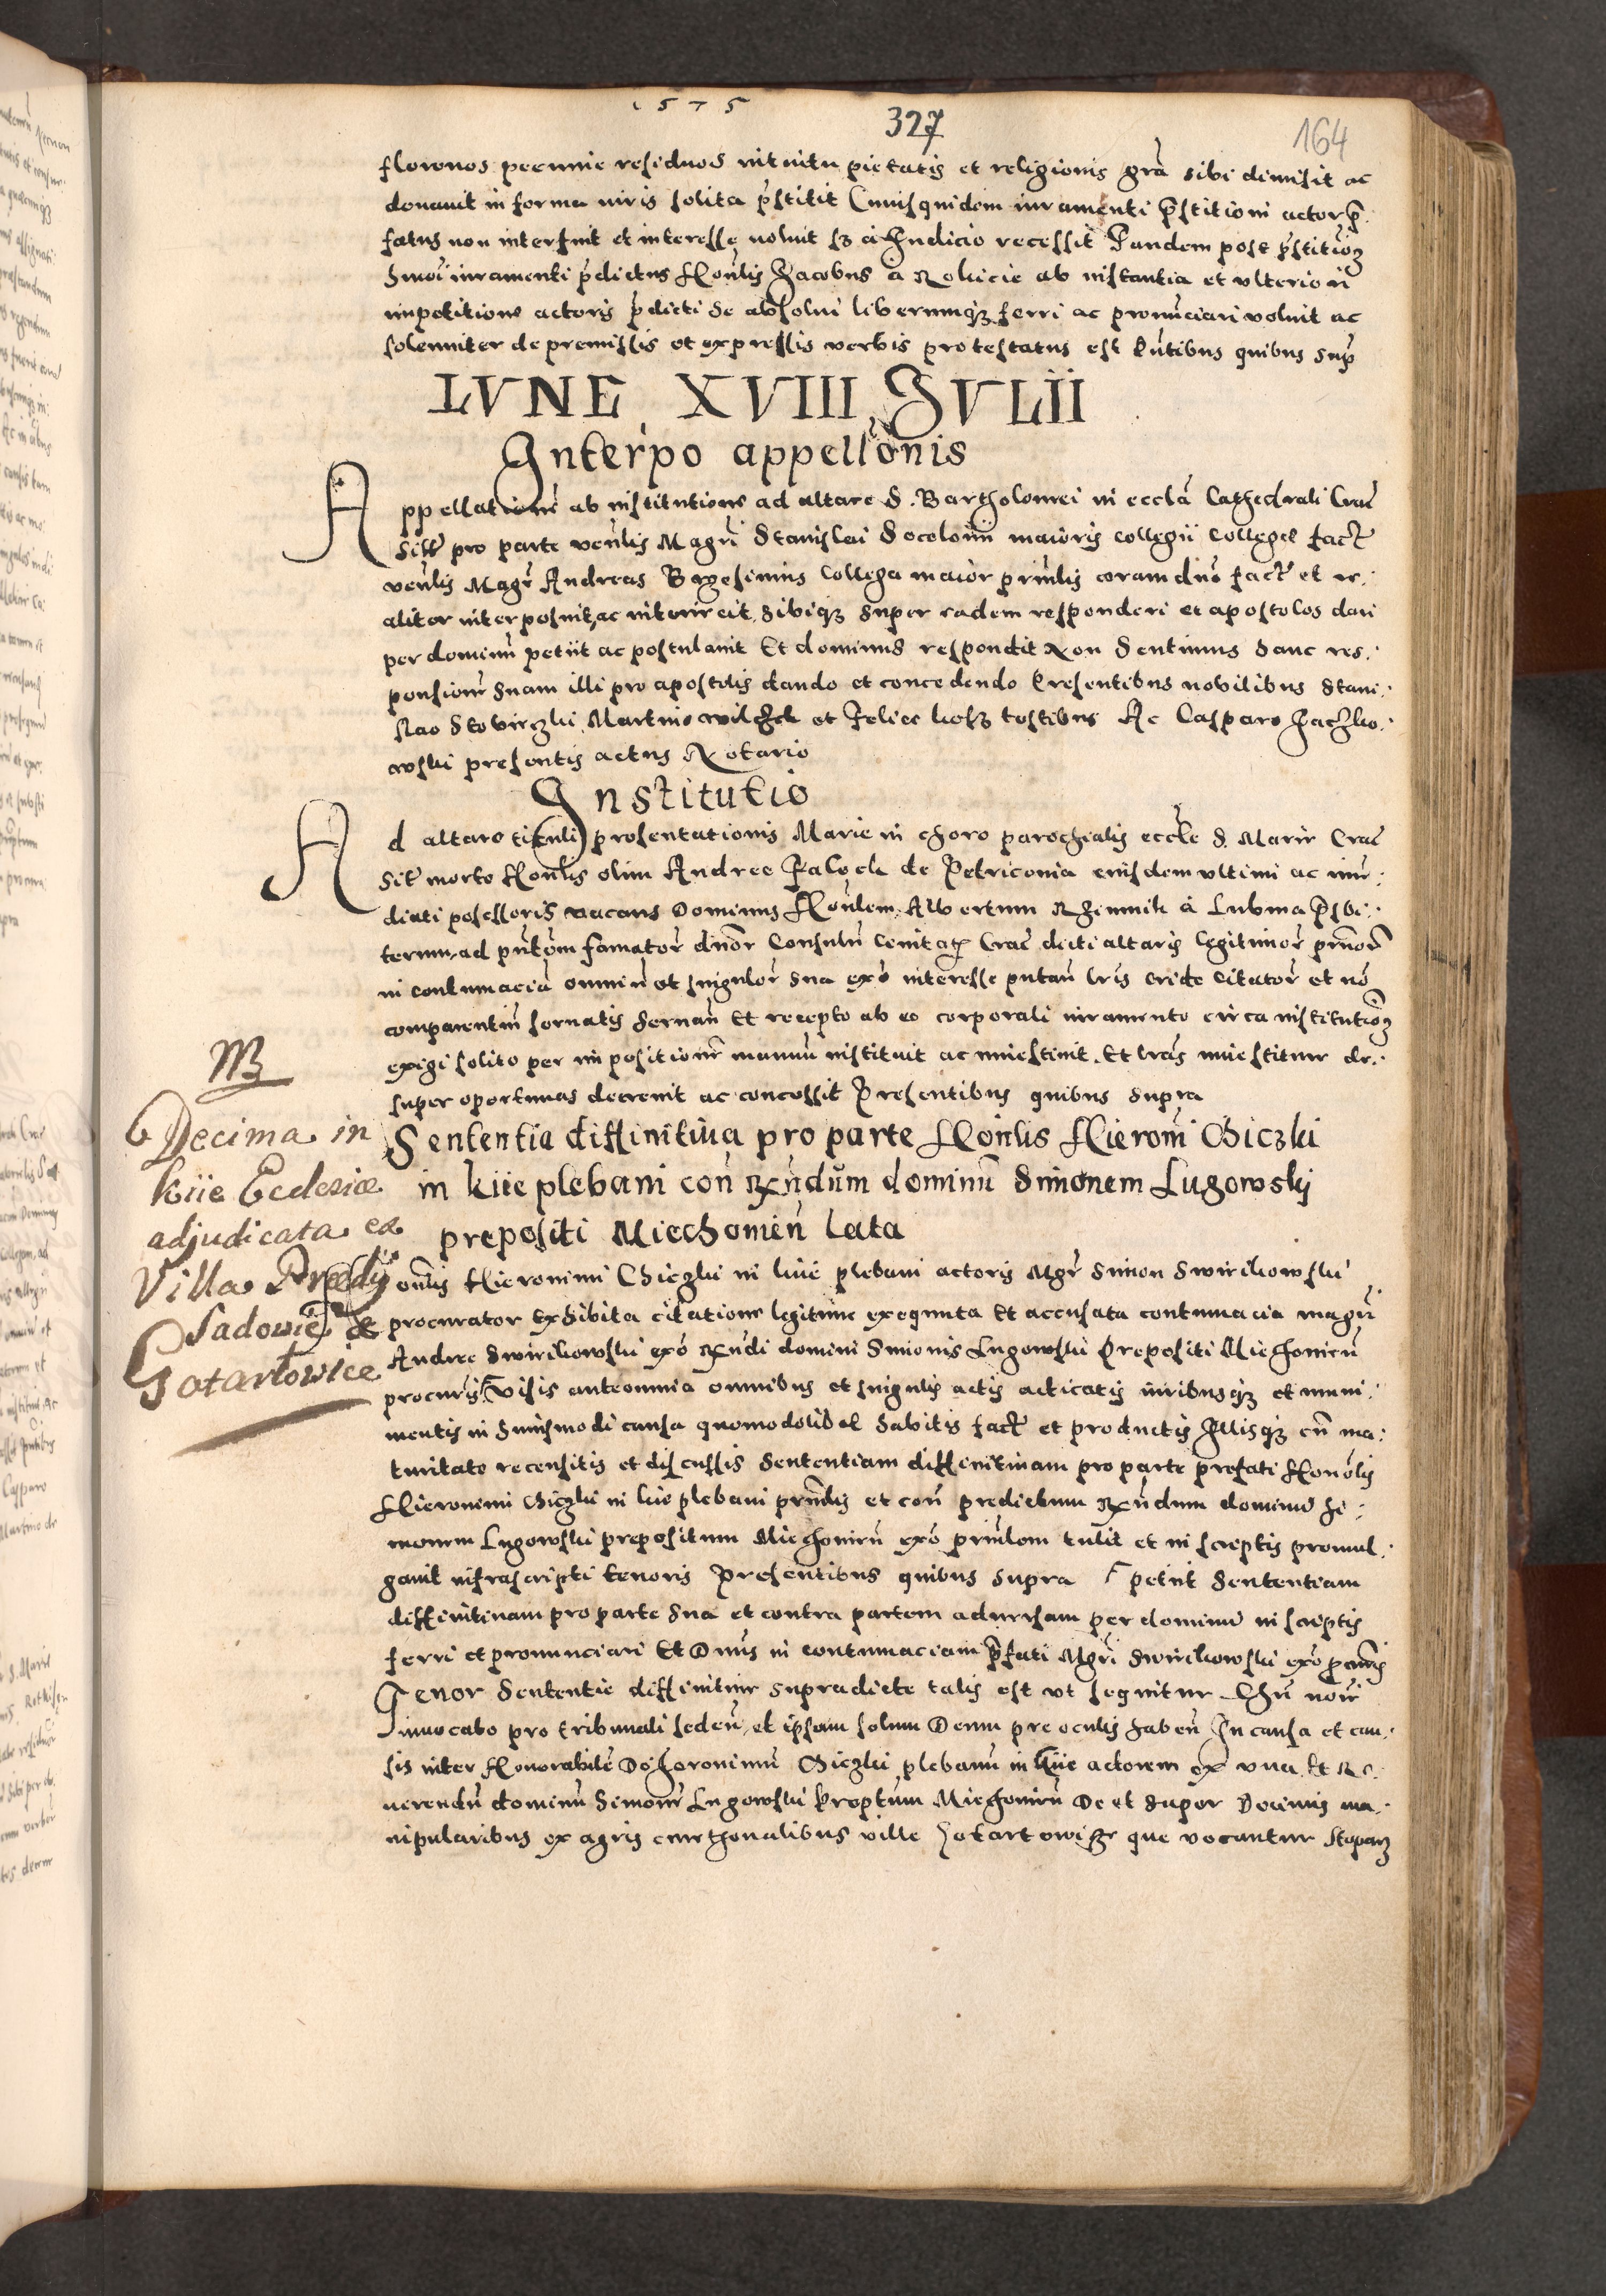 1575
327
164
florenos pecunie residuos intuitu pietatis et religionis gra sibi dimisit ac
donavit in forma iuris solita prstitit Cuiusquidem iuramenti prstitioni actor pre
fatus non interfuit et interesse noluit sz a Iudicio recessit Tandem post prstitionz
hmoi iuramenti pdictus Honlis Jacobus a Rokicie ab instantia et ulteriori
impetitione actoris pdicti se absolvi liberumqz ferri ac pronunciari voluit ac
solenniter de premissis et expressis verbis protestatus est Pntibus quibus supr
LVNE XVIII JVLII
Interpo appellonis
Appellationem ab institutione ad altare S. Bartholomei in eccla Cathedrali Crac
sitt pro parte venlis Magri Stanislai Socolovii maioris collegii Collegae fact
venlis Magr Andreas Bargesimus Collega maior prinlis coram dno fact et re.
aliter interposuit, ac interiecit, sibiqz super eadem responderi et apostolos dari
per dominu petiit ac postulavit Et dominus respondit Non Sentimus hanc res.
ponsionem suam illi pro apostolis dando et concedendo Presentibus nobilibus Stani.
slao Martino Wilczek et Felice testibus Ac Casparo
presentis actus Notario
Institutio
Ad altare tituli presentationis Marie in choro parochialis eccle S. Marie Crac
Sit morte Honlis olim Andree de Petriconia eiusdem ultimi ac imme
diati possessoris vacans Dominus Honlem Albertum a Lubina prsbi.
terum, ad pntom famator dnor Consulu Civitatz Crac dicti altaris legitimor prnor
in contumaciu omniu et singulor sua exo interesse putan lris cride citator et no
comparentiu servatis servan Et recepto ab eo corporali iuramento circa institutionz
exigi solito per impositionem manuu instituit ac investivit. Et lras investiture de.
super oportunas decrevit ac concessit Presentibus quibus supra
NB
Decima in
kiie Ecclesiae
adjudicata ex
Villa Praedij
Sadowie &
Gotartowice
Sententia diffinitiva pro parte Honlis Hieroni Chiczki
in kiie plebani con Rndum dominu Simonem Lugowskij
prepositi Miechomen Lata
onlis Hieronimi Chiczki in kiie plebani actoris Mgr Simon Swirikowski
procurator Exhibita citatione legitime exequuta Et accusata contumacia magri
Andree Swirikowski exo Rndi domini Simonis Lugowski Prepositi Miechomien
procuris Visis ante omnia omnibus et singulis actis acticatis iuribusqz et muni.
mentis in huiusmodi causa quomodolibet habitis fact et productis Illisqz cu ma.
turitate recensitis et discussis Sententiam diffinitivam pro parte prefati Honolis
Hieronimi Chiczki in kiie plebani prndis et con predictum Rndum dominu Si.
monem Lugowski prepositum Miechomien exo prinlem tulit et in scriptis promul.
gavit infrascripti tenoris Presentibus quibus supra petiit Sententiam
diffinitivam pro parte sua et contra partem adversam per dominu in scriptis
ferri et pronunciari Et Dnus in contumaciam prfati Mgri Swirikowski exo
Tenor Sententie diffinitive supradicte talis est ut sequitur. Chri noie
invocato pro tribunali seden, et ipsum solum Deum pre oculis haben In causa et cau.
sis inter Honorabile D. Hieronimu Chiczki plebanu in kiie actorem ex una Et Re
verendu dominu Simone Lugowski Preptum Miechomien De et super Decimis ma.
nipularibus ex agris cmethonalibus ville que vocantur